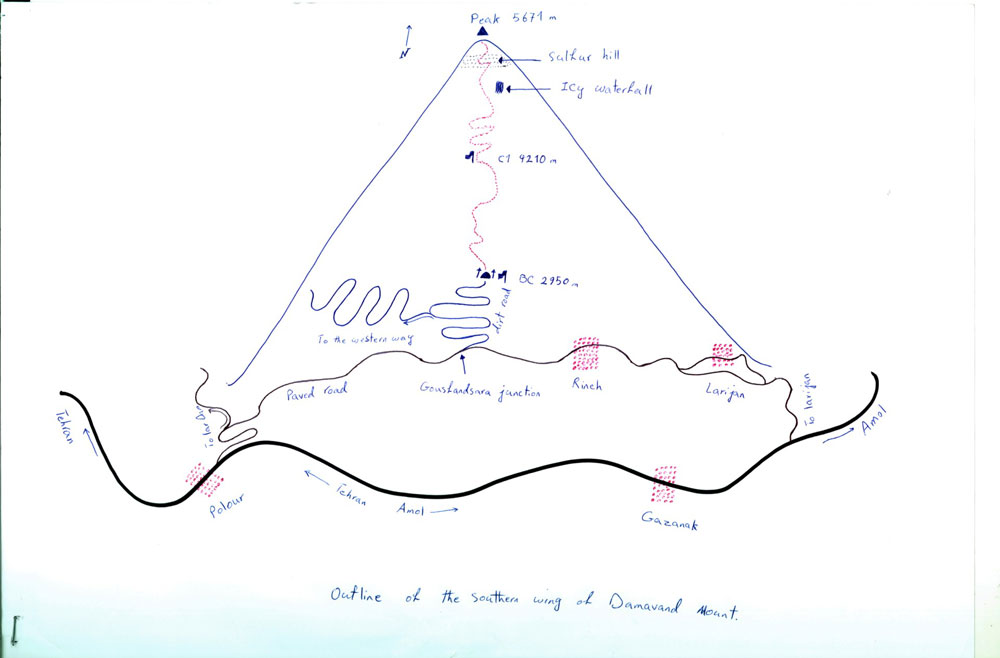 Peak 5671 m
N
Sulfur hill
Icy waterfall
C1 4210 m
BC 2950 m
dirt road
To the western way
Paved road
Gousfandsara junction
Rineh
Larijan
To larijan
To lar Dam
Tehran
Amol
Polour
Tehran
Amol
Gazanak
Outline of the southern wing of Damavand Mount.